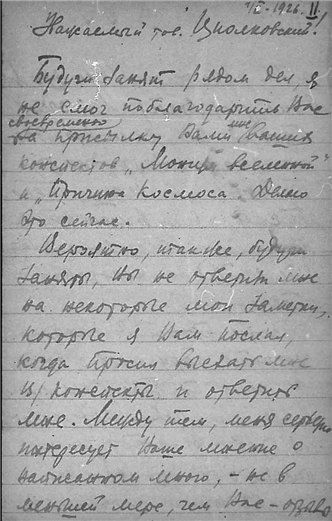 1926. II
Уважаемый тов. Циолковский!
Будучи занят рядом дел я
не смог поблагодарить Вас
своевременно
за присылку Вами мне ваших
конспектов „Монизм вселенной"
и „Причина Космоса". Делаю
это сейчас.
Вероятно, также, будучи
заняты, Вы не ответили мне
на некоторые мои заметки,
которые я Вам послал,
когда просил выслать мне
конспекты и ответить
мне. Между тем, меня
интересует Ваше мнение о
написанном мною, - не в
меньшей мере, чем Вас -